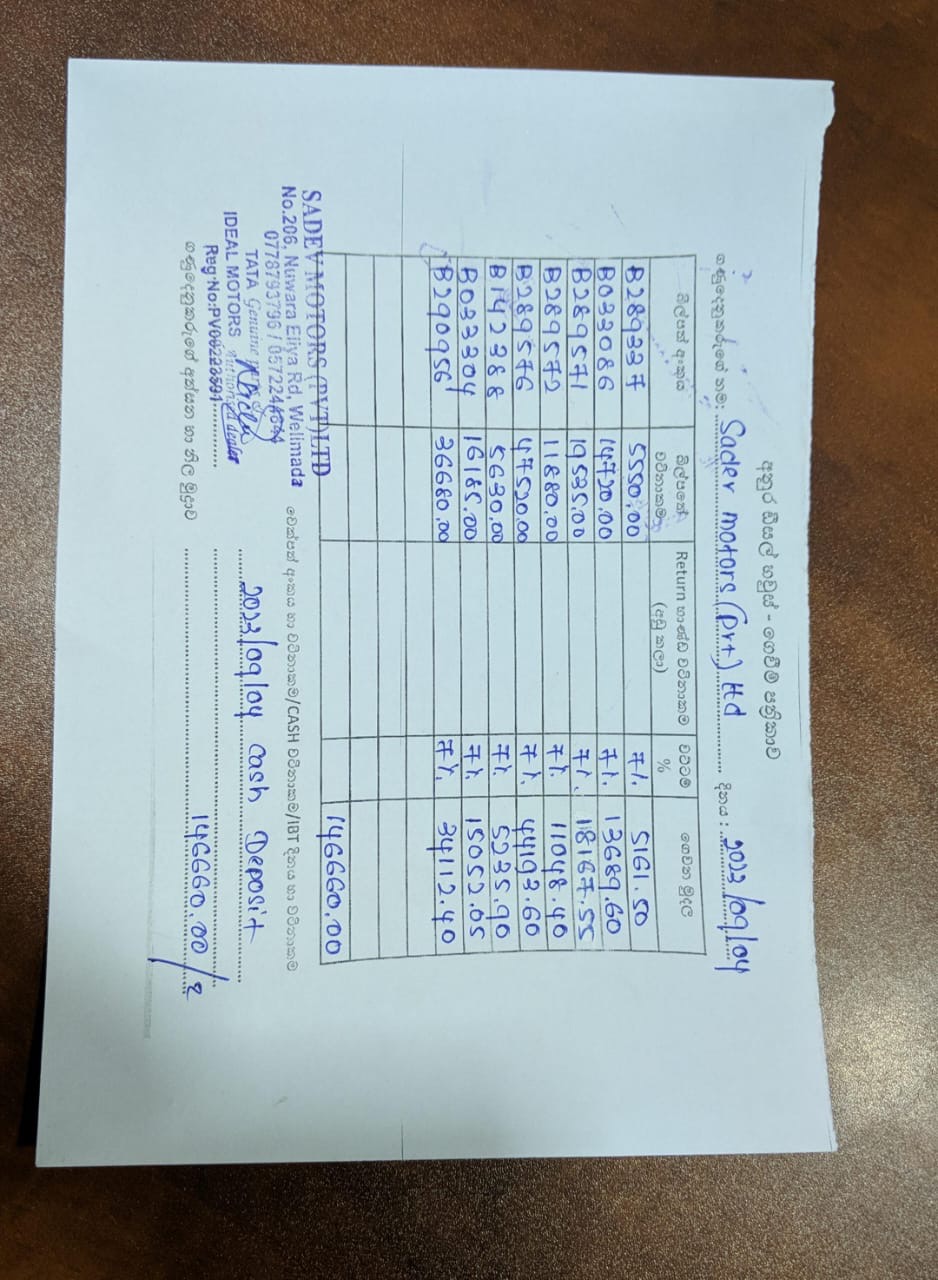 අනුර ඩීසල් හවුස් - ගෙවීම් පත්‍රිකාව
ගණුදෙනුකරුගේ නම: Sadev motors (pvt) ltd දිනය : 2023/09/04
බිල්පත් අංකය බිල්පතේ වටිනාකම Return භාණ්ඩ වටිනාකම (අඩු කලා) වට්ටම % ගෙවන මුදල
B289337 5550.00 7% 5161.50
B033086 14720.00 7% 13689.60
B289571 19535.00 7% 18167.55
B289572 11880.00 7% 11048.40
B289576 47520.00 7% 44193.60
B142388 5630.00 7% 5235.90
B033304 16185.00 7% 15052.05
B290956 36680.00 7% 34112.40
146660.00
SADEV MOTORS (PVT) LTD
No.206, Nuwara Eliya Rd, Welimada
0778793796 /
TATA Genuine
IDEAL MOTORS Authorised dealer
Reg No:PV00223591
චෙක්පත් අංකය හා වටිනාකම/CASH වටිනාකම/IBT දිනය හා වටිනාකම
2023/09/04 cash Deposit
146660.00/=
ගණුදෙනුකරුගේ අත්සන හා නිල මුද්‍රාව